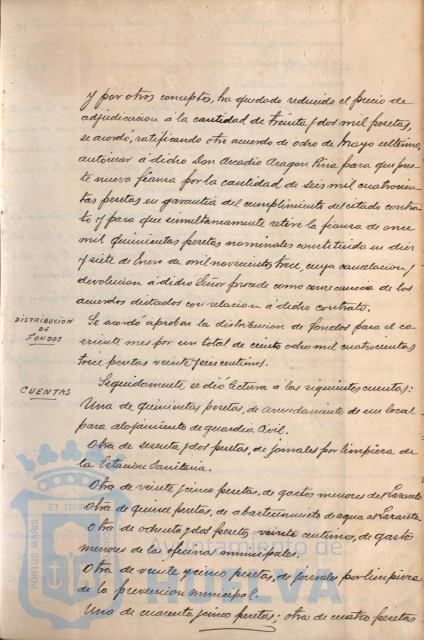 y por otros conceptos, ha quedado reducido el precio de
adjudicacion á la cantidad de treinta y dos mil pesetas,
se acordó, ratificando otro acuerdo de ocho de Mayo último,
autorizar á dicho Don Arcadio Aragon Piña para que pres-
te nueva fianza por la cantidad de seis mil cuatrocien-
tas pesetas en garantia del cumplimiento del citado contra-
to y para que simultaneamente retire la fianza de once
mil quinientas pesetas nominales constituida en diez
y siete de Enero de mil novecientos trece, cuya cancelacion y
devolucion á dicho Señor procede como consecuencia de los
acuerdos dictados con relacion á dicho contrato.
DISTRIBUCION
DE
FONDOS
Se acordó aprobar la distribucion de fondos para el co-
rriente mes por un total de ciento ocho mil cuatrocientas
trece pesetas veinte y seis centimos.
CUENTAS
Seguidamente se dio lectura á las siguientes cuentas:
Una de quinientas pesetas, de arrendamiento de un local
para alojamiento de guardia Civil.
Otra de sesenta y dos pesetas, de jornales por limpieza de
la Estacion Sanitaria.
Otra de veinte y cinco pesetas, de gastos menores del Lazareto.
Otra de quince pesetas, de abastecimiento de agua al Lazareto.
Otra de ochenta y dos pesetas veinte centimos, de gastos
menores de las oficinas municipales.
Otra de veinte y cinco pesetas, de jornales por limpieza
de la prevencion municipal.
Una de cuarenta y cinco pesetas; otra de cuatro pesetas
Ayuntamiento de
HUELVA
PORTUS MARIS
ET TERRAE